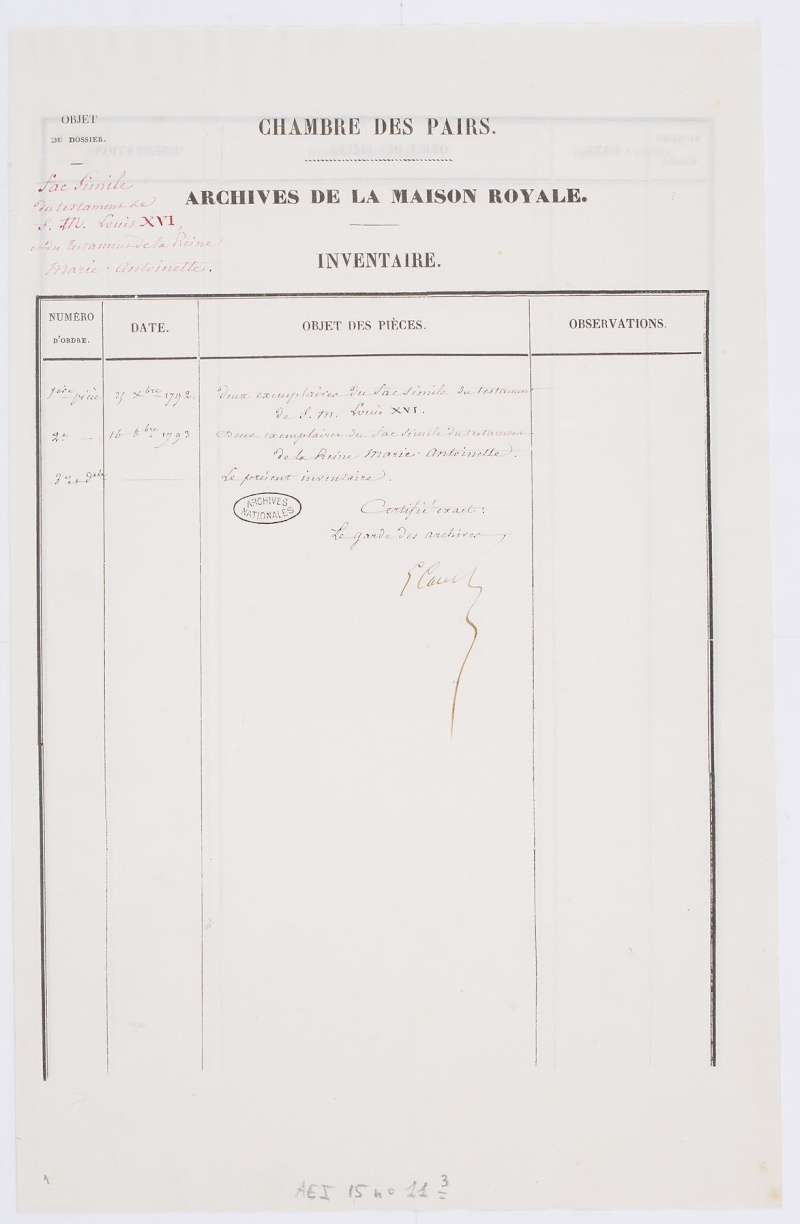 OBJET
DU DOSSIER.
Fac Simile
du testament de
S. M. Louis XVI,
et du testament de la Reine
Marie-Antoinette.
CHAMBRE DES PAIRS.
ARCHIVES DE LA MAISON ROYALE.
INVENTAIRE.
NUMÉRO
D'ORDRE.
DATE.
OBJET DES PIÈCES.
OBSERVATIONS.
1ère pièce 25 Xbre 1792. Deux exemplaires du Fac Simile du testament
de S. M. Louis XVI.
2e — 16 8bre 1793 Deux exemplaires du Fac Simile du testament
de la Reine Marie-Antoinette.
3e et dre — Le présent inventaire.
ARCHIVES
NATIONALES
Certifié exact:
Le garde des archives,
AEI 15 no 11 3